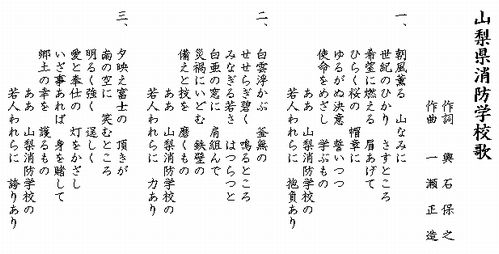 山梨県消防学校歌
作詞 輿石保之
作曲 一瀬正造
一、
朝風薫る 山なみに
世紀のひかり さすところ
希望に燃える 眉あげて
ひらく桜の 帽章に
ゆるがぬ決意 誓いつつ
使命をめざし 学ぶもの
ああ 山梨消防学校の
若人われらに 抱負あり
二、
白雲浮かぶ 釜無の
せせらぎ碧く 鳴るところ
みなぎる若さ はつらつと
白亜の窓に 肩組んで
災禍にいどむ 鉄壁の
備えと技を 磨くもの
ああ 山梨消防学校の
若人われらに 力あり
三、
夕映え富士の 頂きが
南の空に 笑むところ
明るく強く 逞しく
愛と奉仕の 灯をかざし
いざ事あれば 身を賭して
郷土の幸を 護るもの
ああ 山梨消防学校の
若人われらに 誇りあり